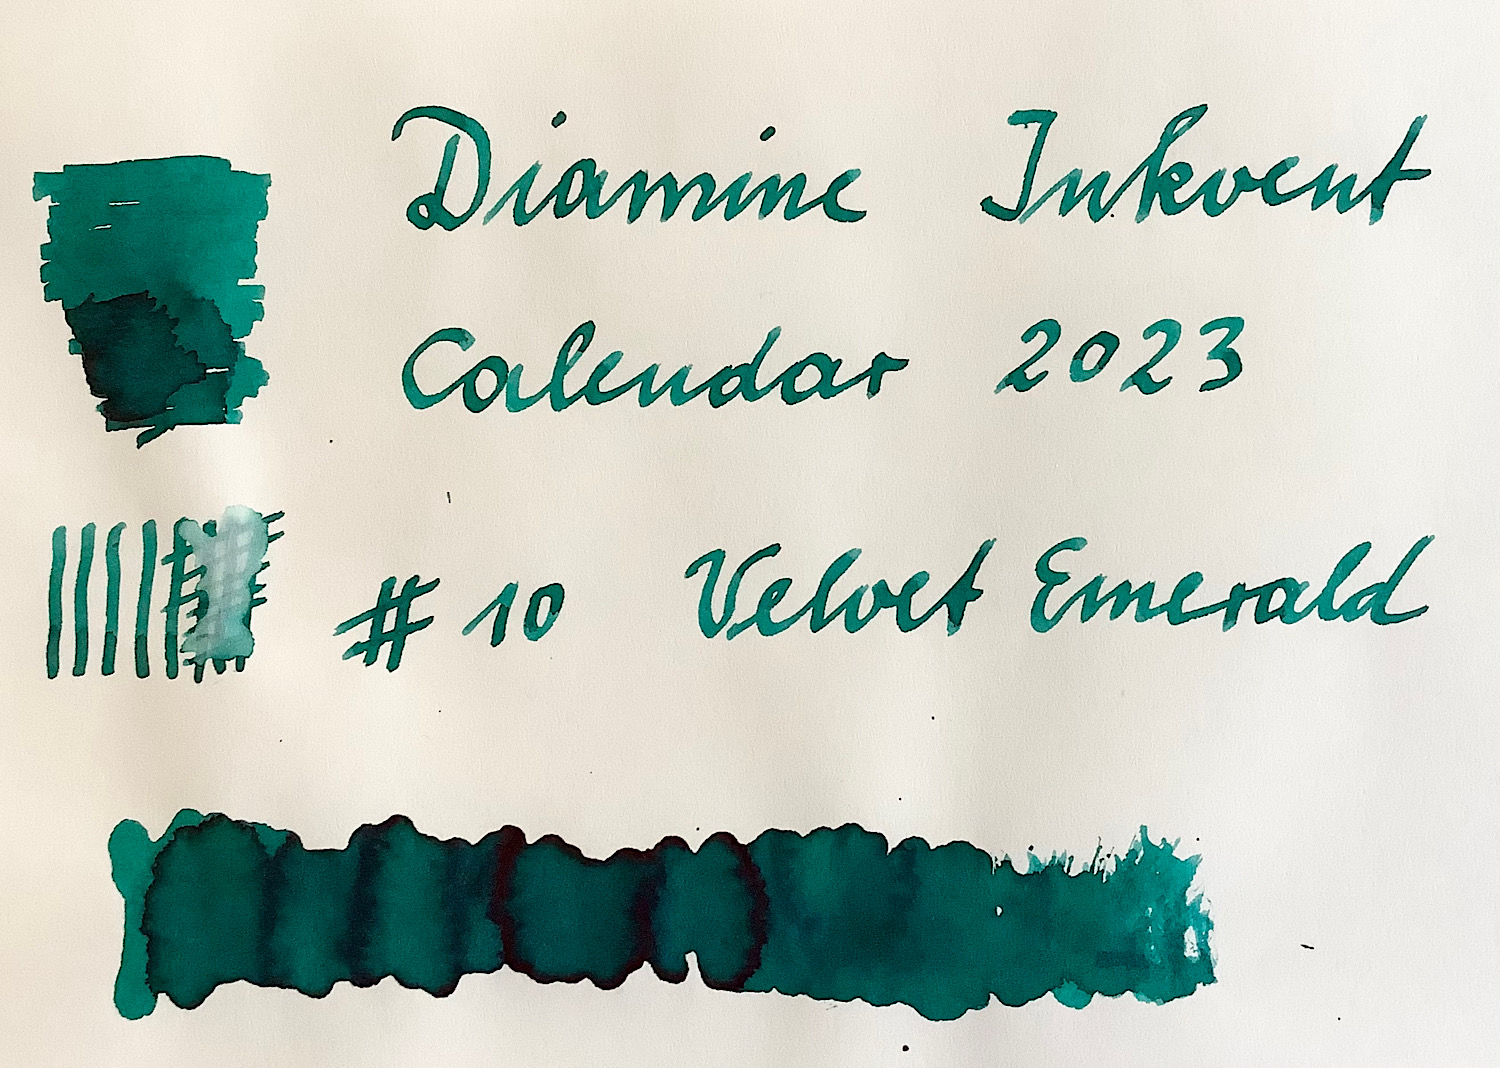 Diamine Inkvent
Calendar 2023
# 10 Velvet Emerald